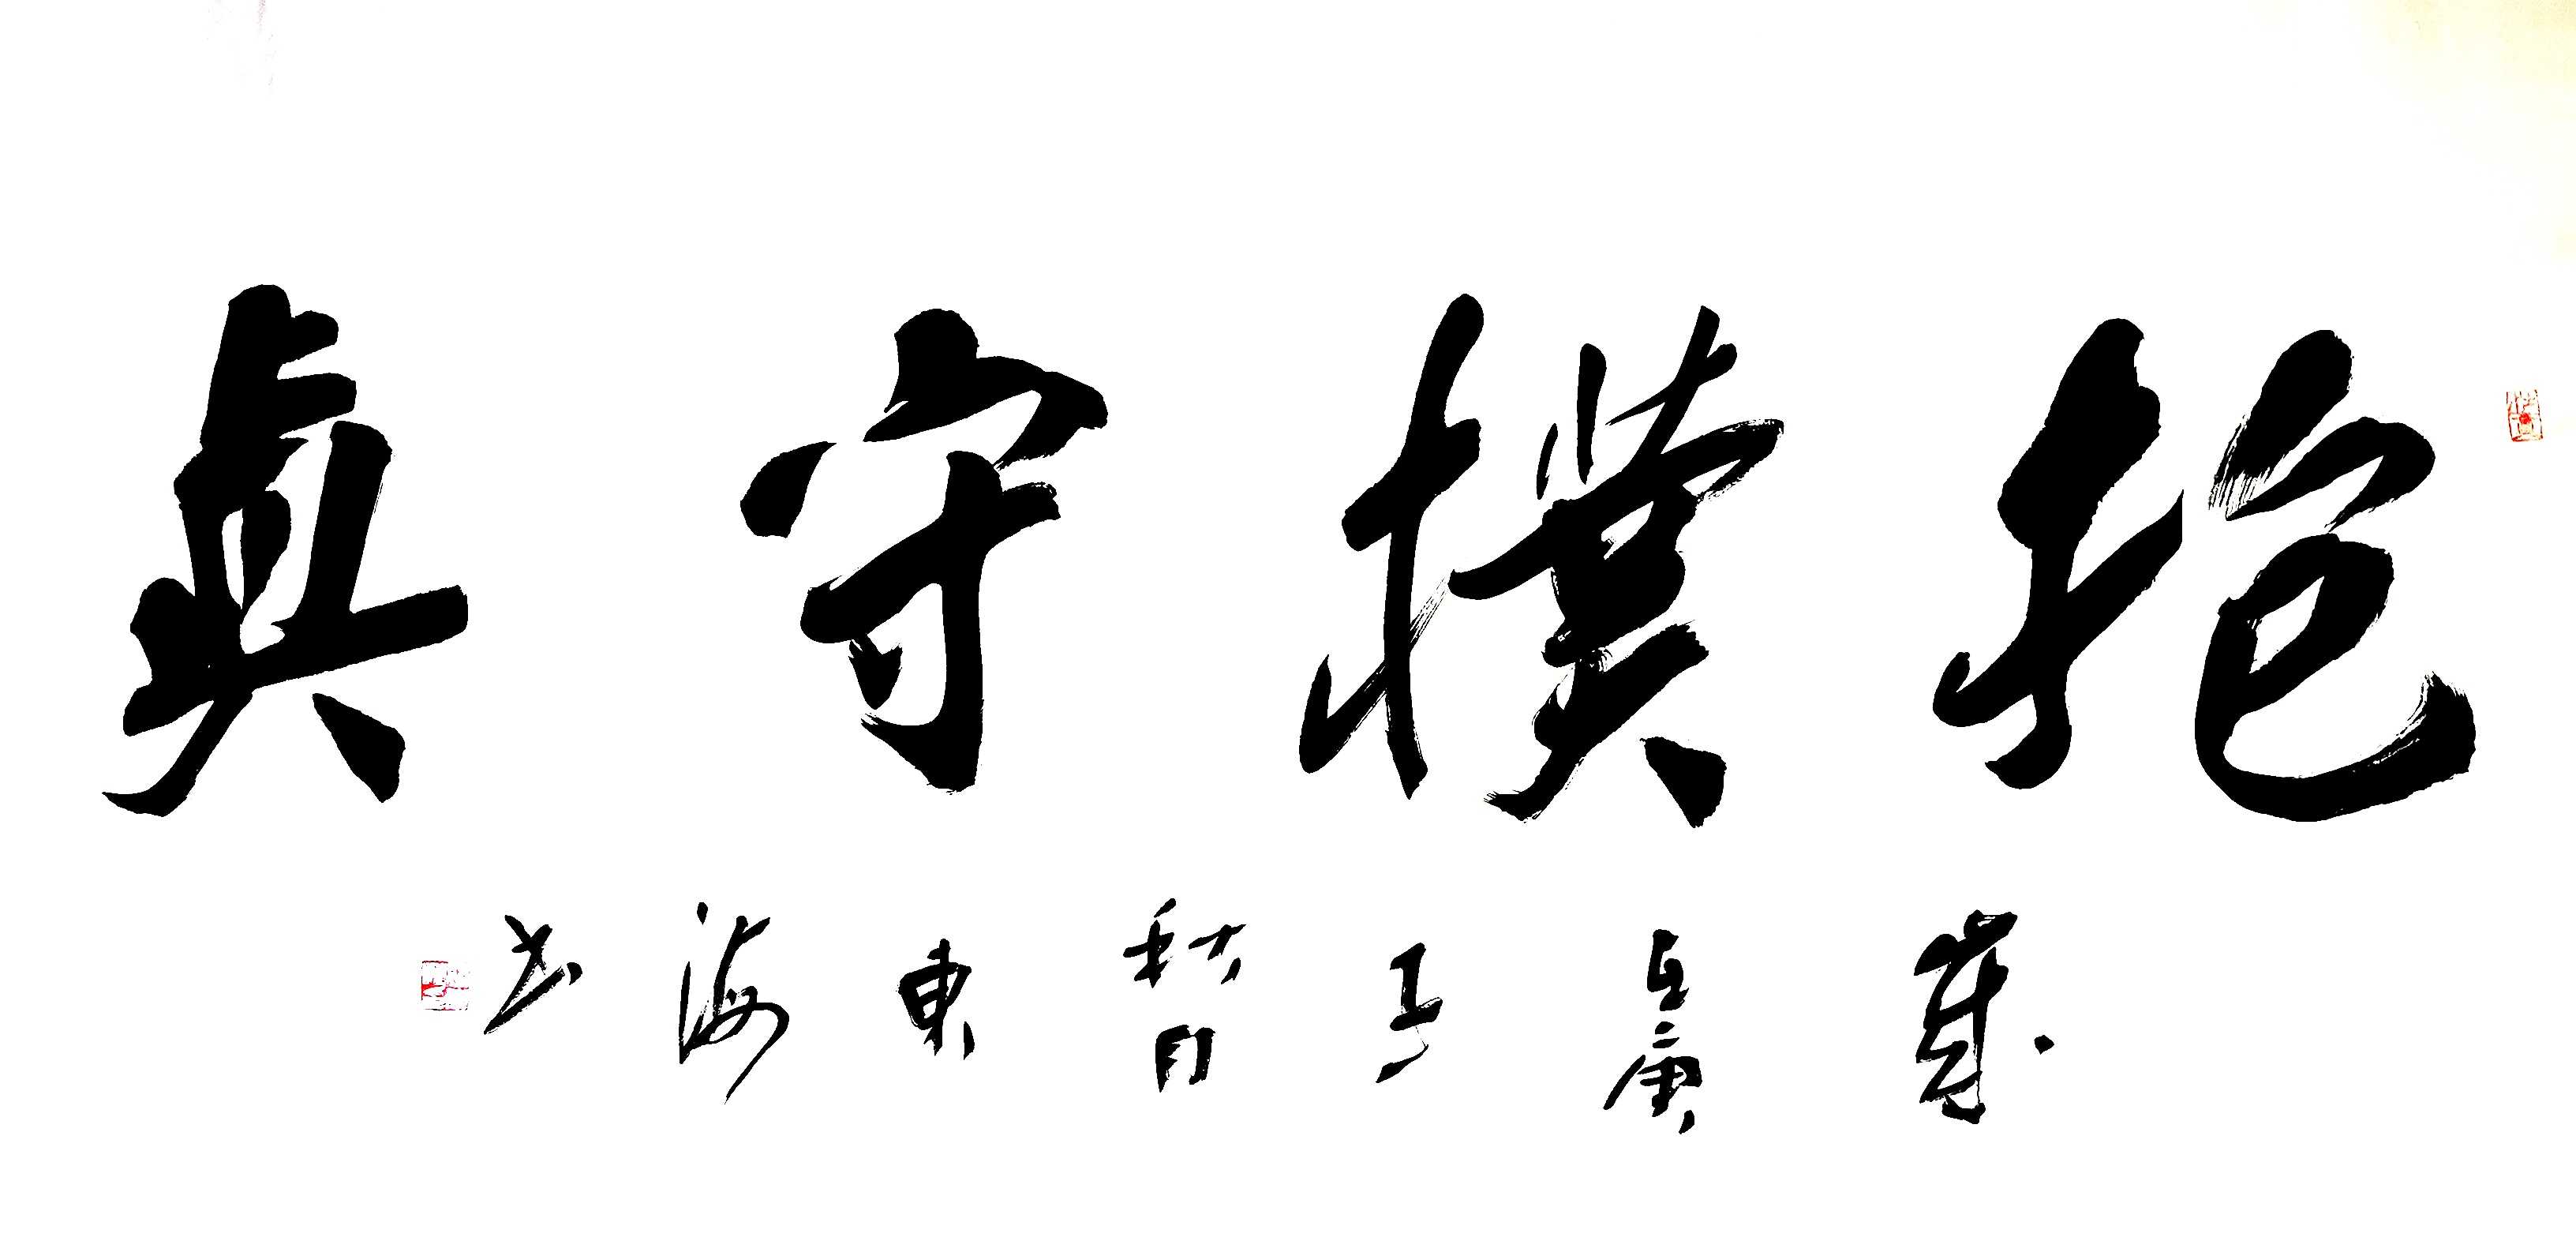 抱樸守真
歲在庚子秋月東海书